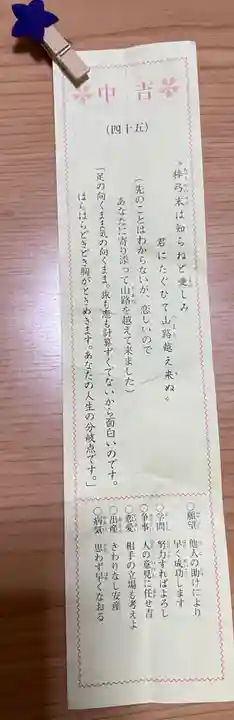 中吉
(四十五)
"梓弓末は知らねど愛しみ
君にたぐひて山路越え来ぬ"
(先のことはわからないが、恋しいので
あなたに寄り添って山路を越えて来ました)
「足の向くまま気の向くまま。旅も恋も計算ずくでないから面白いのです。
はらはらどきどき胸がときめきます。あなたの人生の分岐点です。」
○願望 他人の助けにより
早く成功します
○学問 努力すればよろし
○争事 人の意見に任せ吉
○恋愛 相手の立場も考えよ
○出産 さわりなし安産
○病気 思わず早くなおる